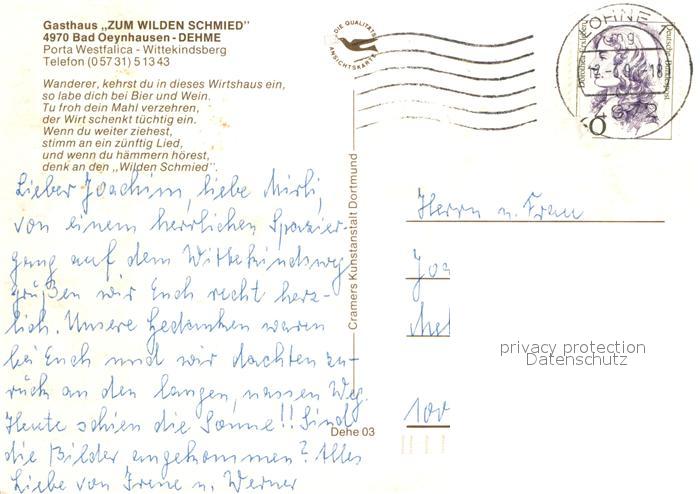 Gasthaus „ZUM WILDEN SCHMIED"
4970 Bad Oeynhausen - DEHME
Porta Westfalica - Wittekindsberg
Telefon (0 57 31) 5 13 43
Wanderer, kehrst du in dieses Wirtshaus ein,
so labe dich bei Bier und Wein.
Tu froh dein Mahl verzehren,
der Wirt schenkt tüchtig ein.
Wenn du weiter ziehest,
stimm an ein zünftig Lied,
und wenn du hämmern hörest,
denk an den „Wilden Schmied".
Lieber Joachim, liebe Mirli,
von einem herrlichen Spazier-
gang auf dem Wittekindsweg
grüßen wir Euch recht herz-
lich. Unsere Gedanken waren
bei Euch und wir dachten zu-
rück an den langen, nassen Weg.
Heute schien die Sonne!! Sind
die Bilder angekommen? Alles
Liebe von Irene u. Werner
DIE QUALITÄTS
ANSICHTSKARTE
Cramers Kunstanstalt Dortmund
Dehe 03
Deutsche Bundespost
Herrn u. Frau
Joa
100
privacy protection
Datenschutz